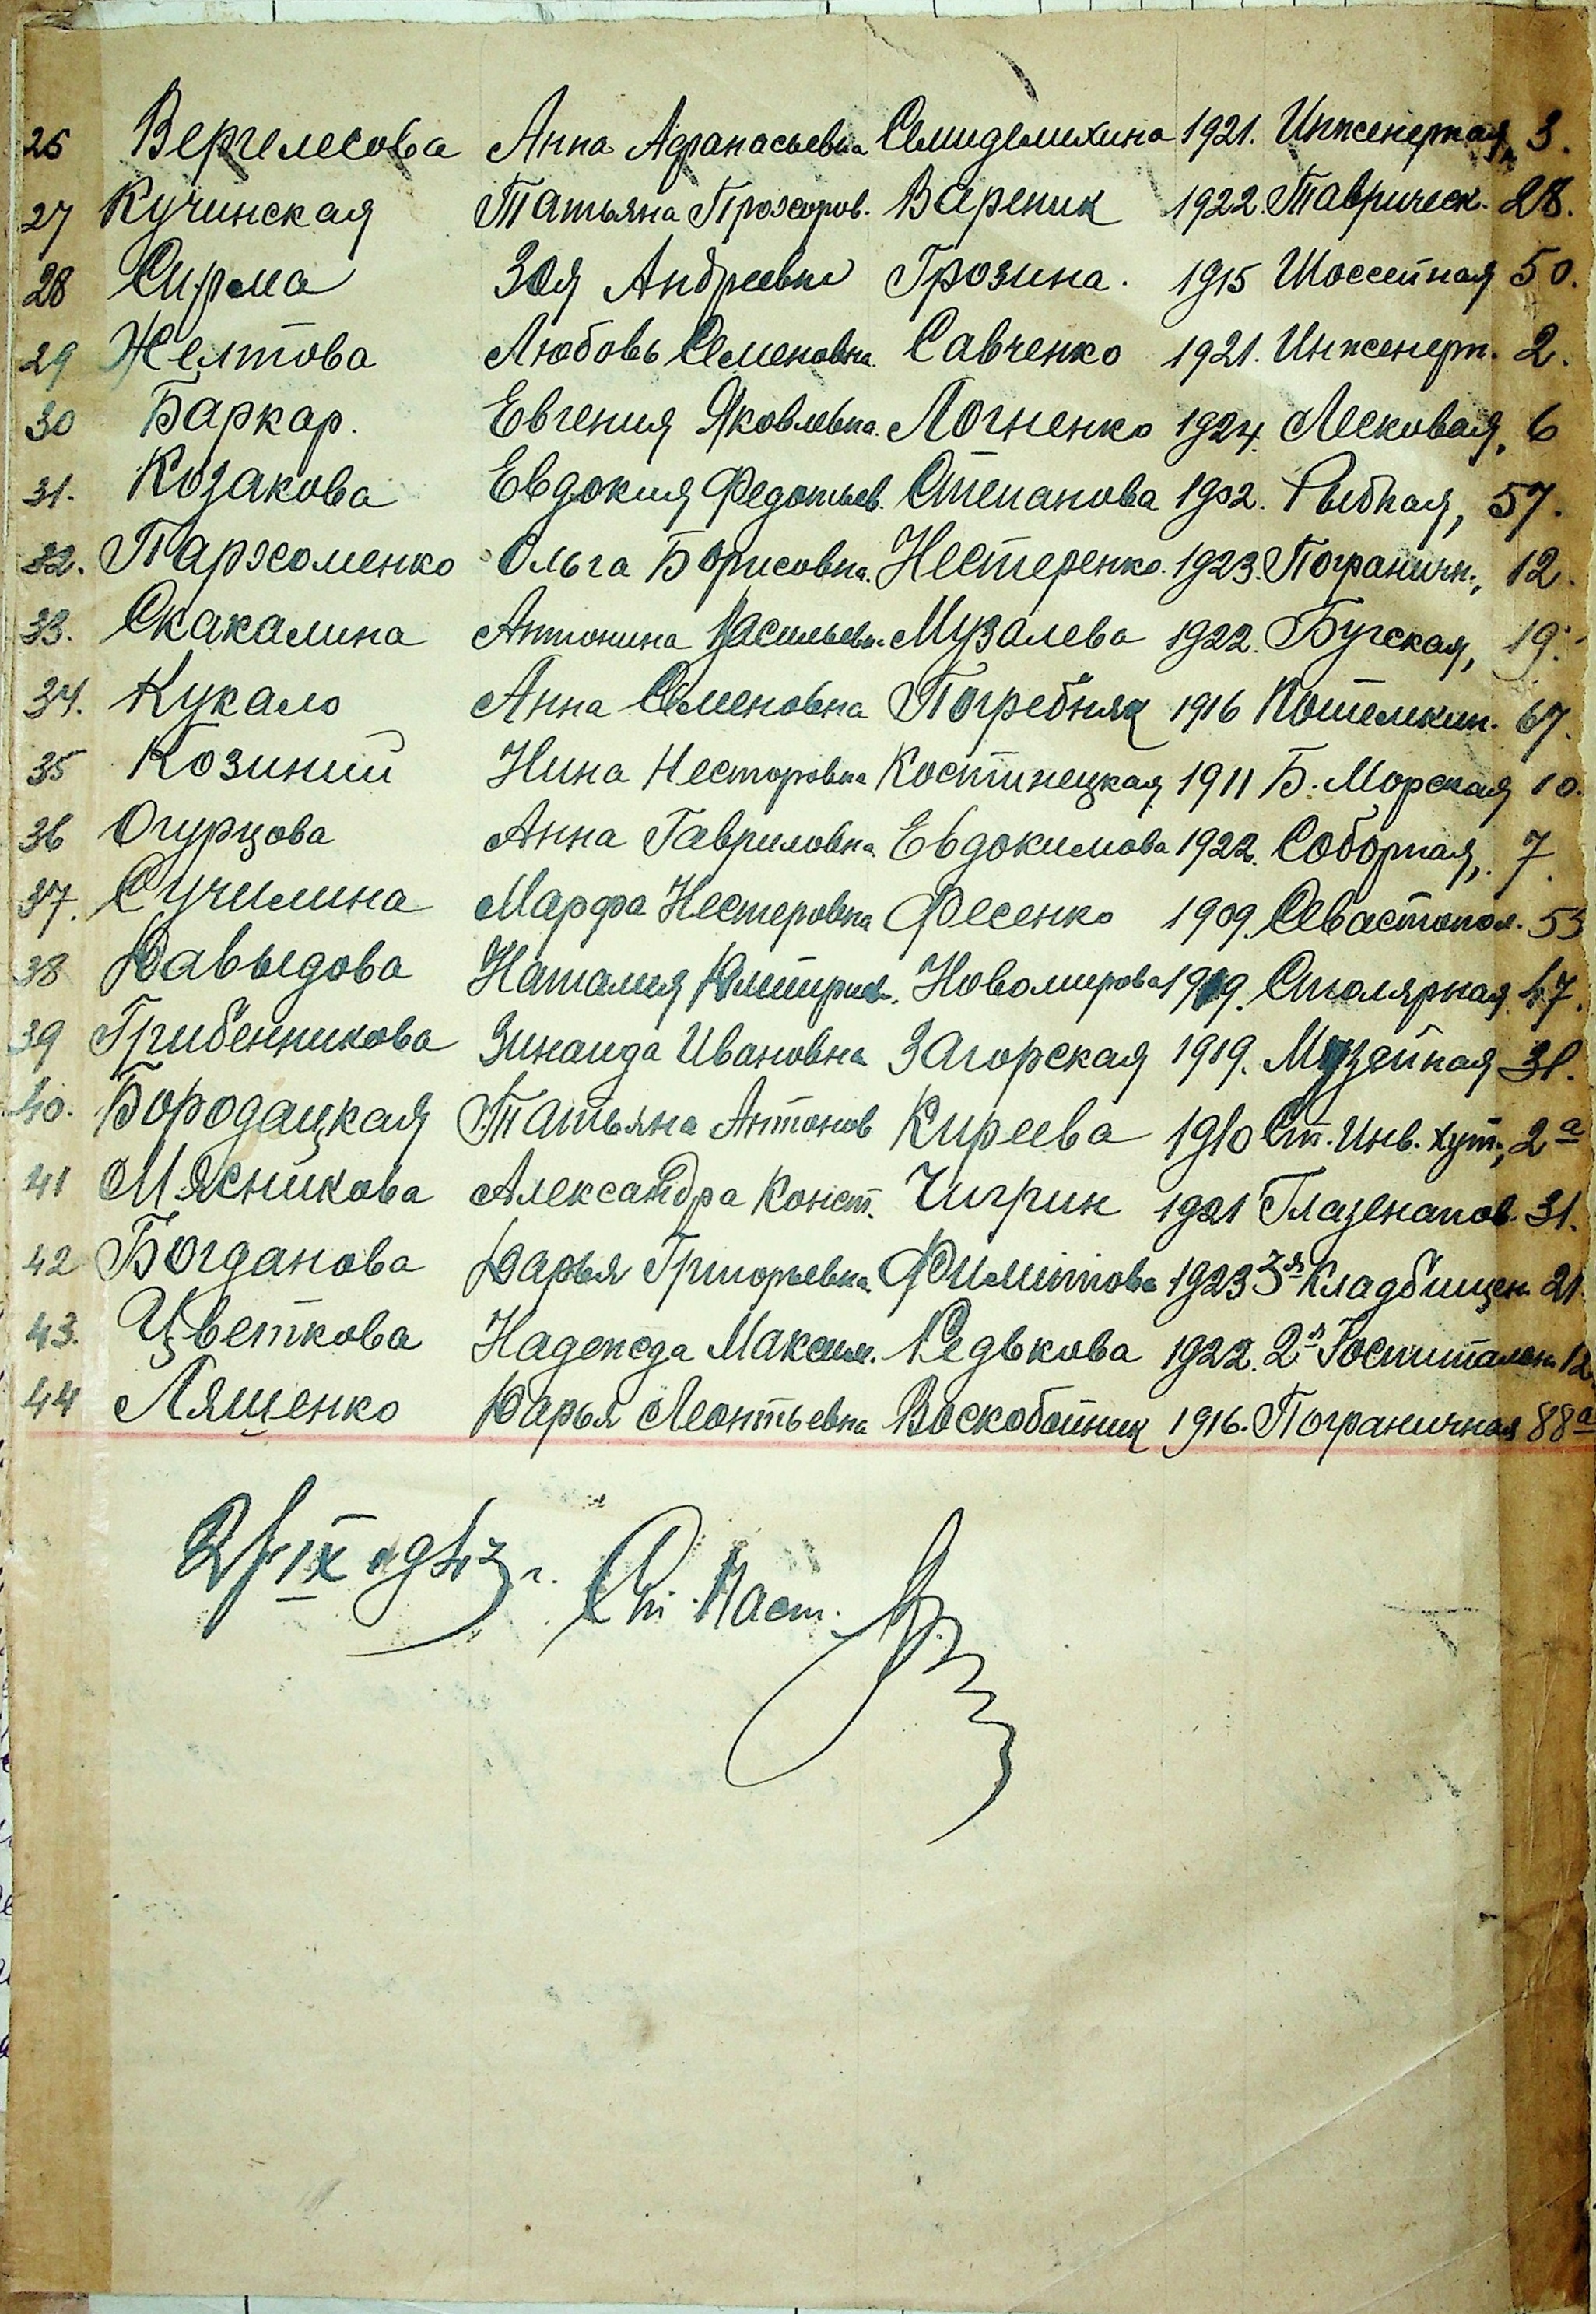 26 Вергелесова Анна Афанасьевна Семиделихина 1921. Инженерная, 3.
27 Кучинская Татьяна Прохоров. Вареник 1922. Таврическ. 28.
28 Сирма Зоя Андреевна Грозина. 1915 Шоссейная 50.
29 Желтова Любовь Семеновна. Савченко 1921. Инженерн. 2.
30 Баркар. Евгения Яковлевна. Логненко 1924. Лесковая, 6
31. Козакова Евдокия Федотьев. Степанова 1902. Рыбная, 57.
32. Пархоменко Ольга Борисовна. Нестеренко. 1923. Погранични., 12.
33. Скакалина Антонина Васильевн. Музалева 1922. Бугская, 19.
34. Кукало Анна Семеновна Погребняк 1916 Потемкин. 67.
35 Козиний Нина Несторовна Костинецкая 1911 Б. Морская 10.
36 Огурцова Анна Гавриловна. Евдокимова 1922. Соборная, 7.
37. Сучилина Марфа Нестеровна Фесенко 1909. Севастопол. 53
38 Давыдова Наталия Дмитриев. Новомирова 1919. Столярная 47.
39 Грибенникова Зинаида Ивановна Загорская 1919. Музейная 31.
40. Бородацкая Татьяна Антонов Киреева 1910 Ст. Инв. хут., 2а
41 Мясникова Александра Конст. Чигрин 1921 Глазенапов. 31.
42 Богданова Дарья Григорьевна. 1923 3я Кладбищен. 21.
43. Цветкова Надежда Максим. Редькова 1922. 2я Госпитальн. 12.
44 Лященко Дарья Леонтьевна Воскобойник 1916. Пограничная 88а
IX 1943 г. Ст. Паст.